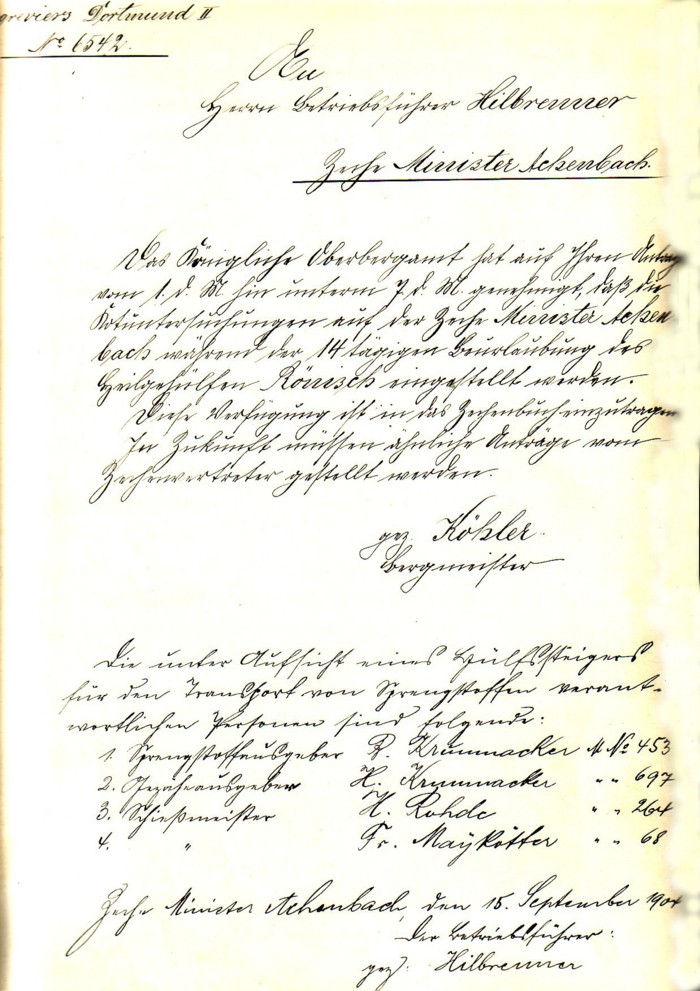 greviers Dortmund II
No 6542.
An
Herrn Betriebsführer Hilbrenner
Zeche Minister Achenbach.
Das Königliche Oberbergamt hat auf Ihren Antrag
vom 1. d. M. hin unterm 7. d. M. genehmigt, daß die
Kotuntersuchungen auf der Zeche Minister Achen
bach während der 14 tägigen Beurlaubung des
Heilgehülfen Rönisch eingestellt werden.
Diese Verfügung ist in das Zechenbuch einzutragen
In Zukunft müssen ähnliche Anträge vom
Zechenvertreter gestellt werden.
gez. Köhler.
Bergmeister
Die unter Aufsicht eines Hülfssteigers
für den Transport von Sprengstoffen verant-
wortlichen Personen sind folgende:
1. Sprengstoffausgeber B. Krummacker M No 453
2. Gezäheausgeber H. Krummacker " " 697
3. Schießmeister H. Rohde " " 264
4. " Fr. Maykötter " " 68
Zeche Minister Achenbach, den 15. September 1904
Der Betriebsführer:
gez. Hilbrenner